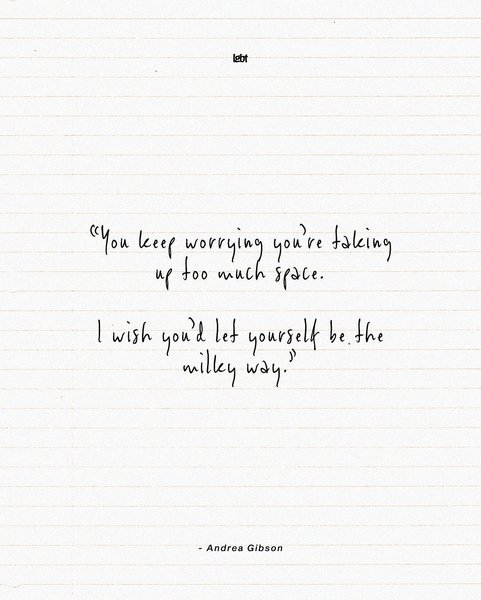 “You keep worrying you're taking
up too much space.
I wish you'd let yourself be the
milky way.”
- Andrea Gibson